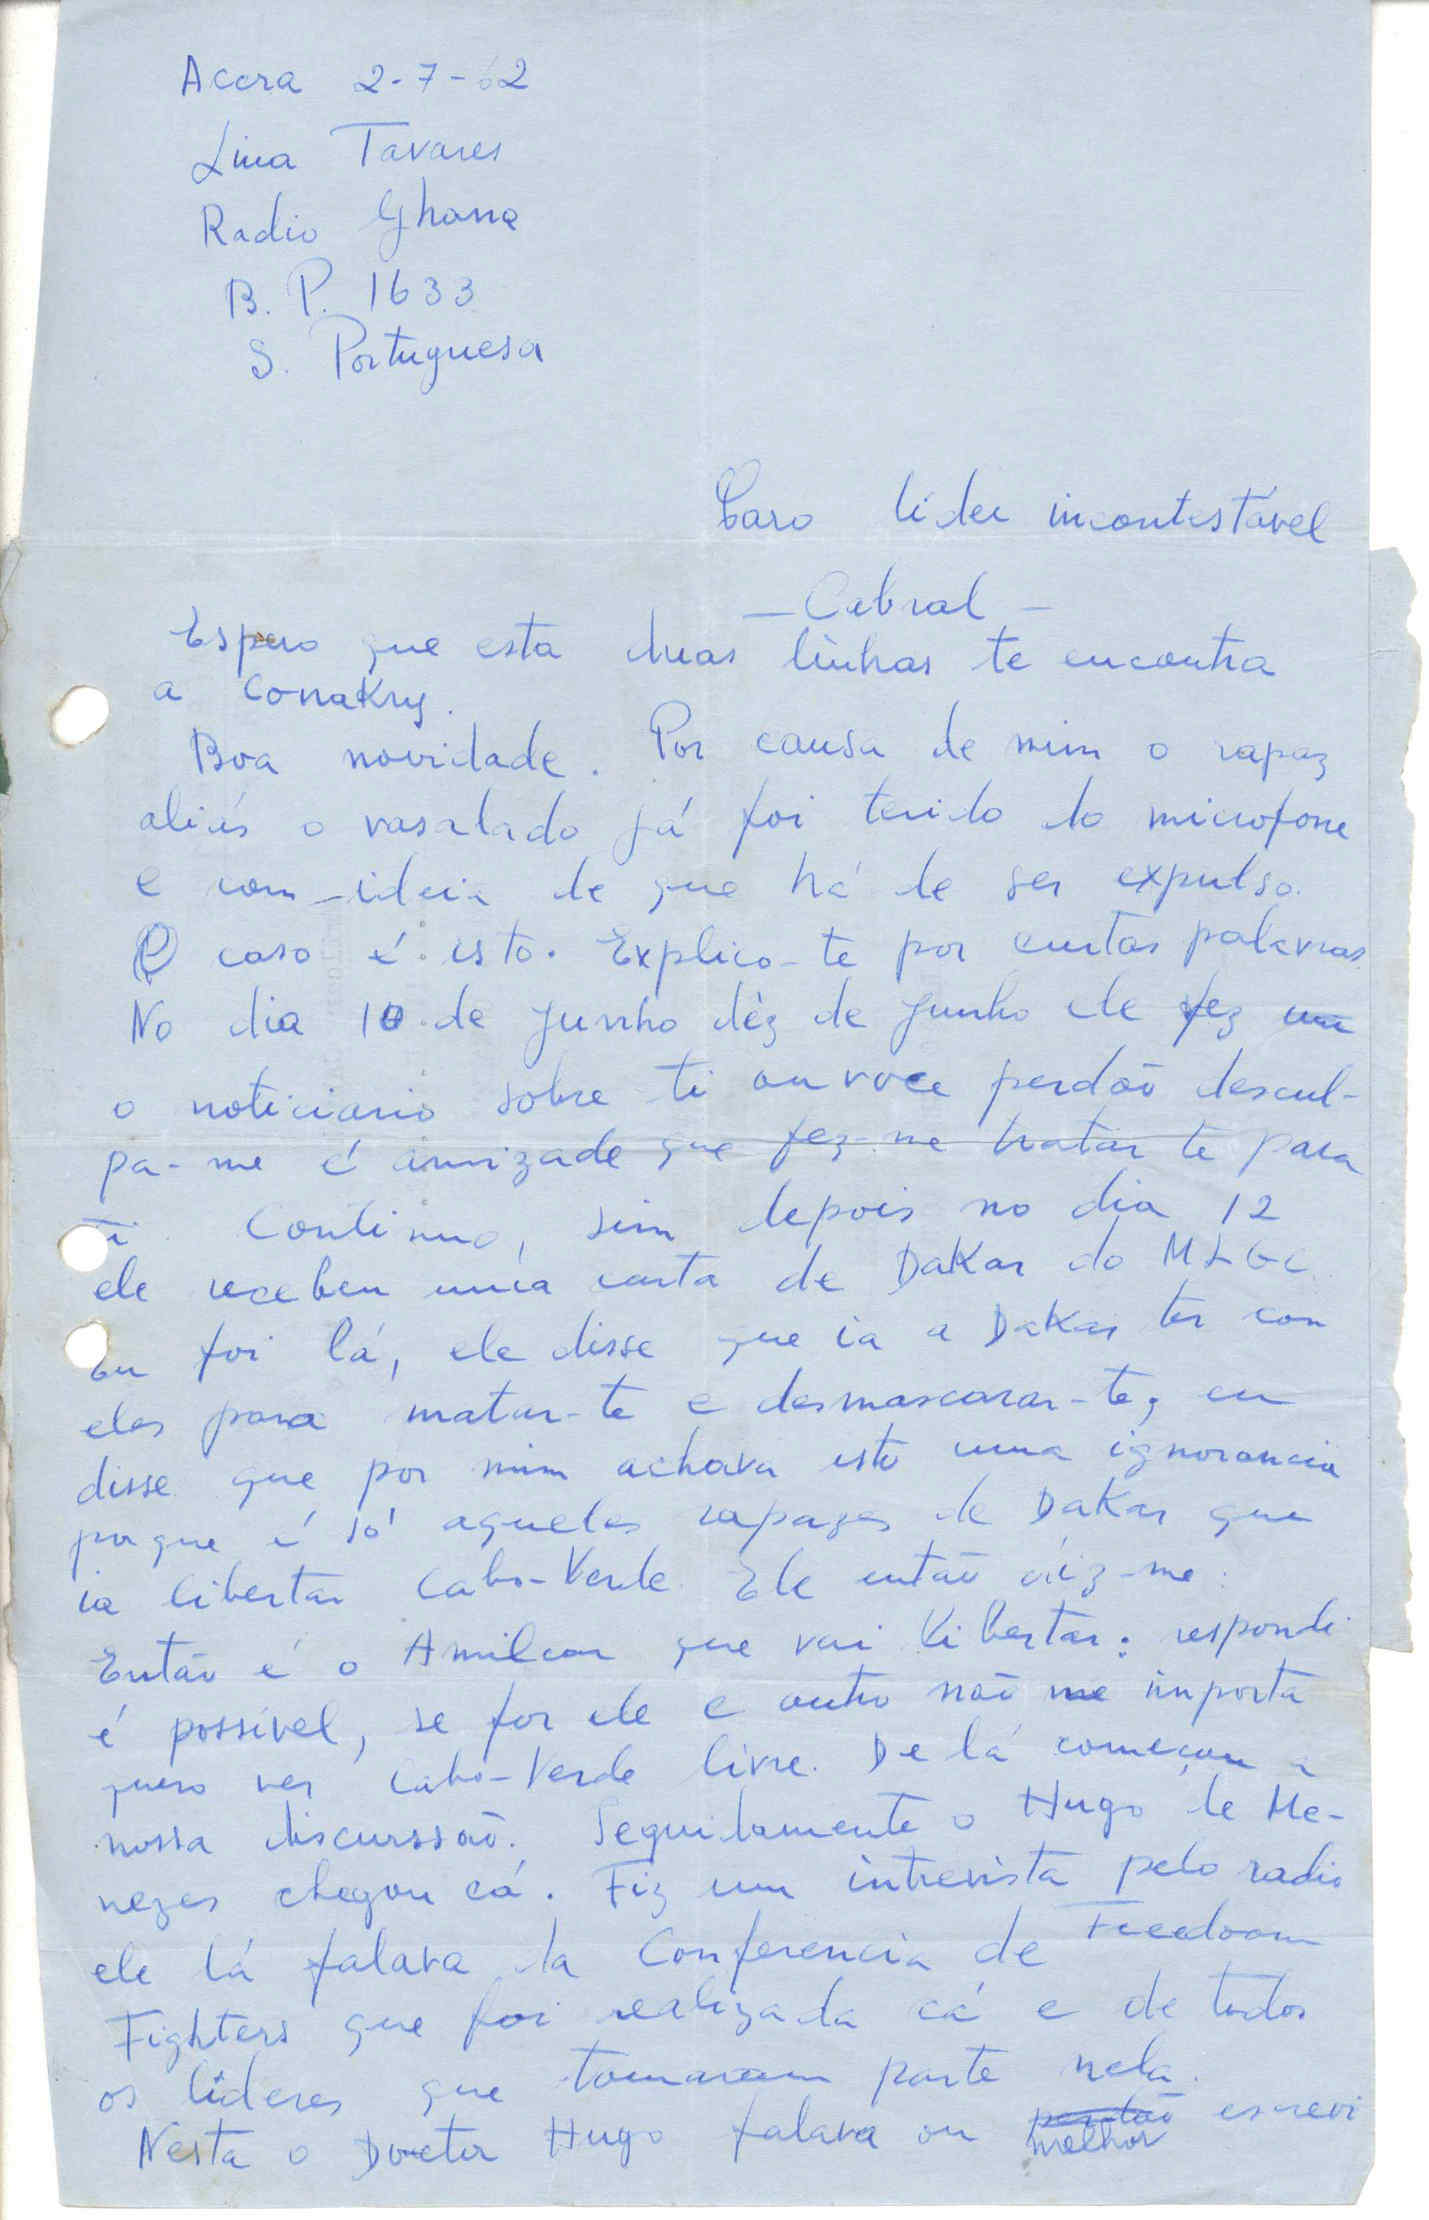 Accra 2-7-62
Lina Tavares
Radio Ghana
B. P. 1633
S. Portuguesa
Caro lider incontestável
— Cabral —
Espero que esta duas linhas te encontra
a Conakry.
Boa novidade. Por causa de mim o rapaz
aliás o vasalado já foi tirido do microfone
e com ideia de que há de ser expulso.
O caso é isto. Explico-te por curtas palavras
No dia 10 de Junho déz de Junho ele fez um
o noticiario sobre ti ou voce perdoô descul-
pa-me é amizade que fez-me tratar te para
ti. Continuo, sim depois no dia 12
ele recebeu uma carta de Dakar do MLGC
Eu foi lá, ele disse que ia a Dakar ter con
eles para matar-te e desmascarar-te, eu
disse que por mim achava isto uma ignorancia
porque é só aqueles rapazes de Dakar que
ia libertar Cabo-Verde. Ele então diz-me:
Então é o Amilcar que vai libertar: respondi
é possível, se for ele e outro não me importa
quero ver Cabo-Verde livre. De lá começou a
nossa discurssão. Seguidamente o Hugo de Me-
nezes chegou cá. Fiz um intrevista pelo radio
ele lá falava da Conferencia de Freedoom
Fighters que foi realizada cá e de todos
os lideres que tomaram parte nela.
Nesta o Docter Hugo falava ou perdão melhor escrevi